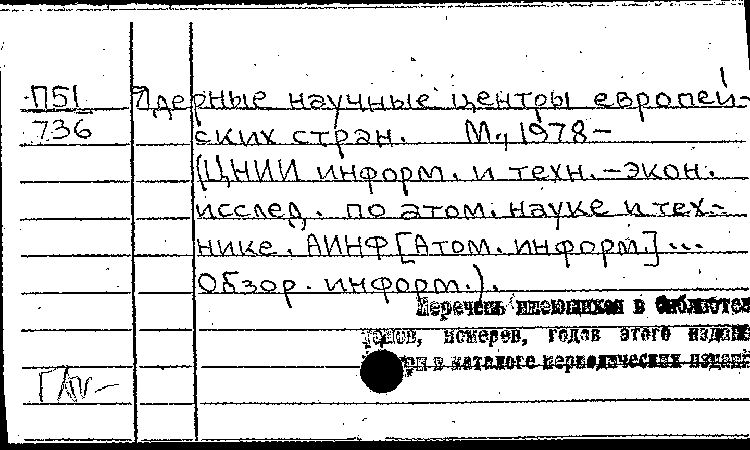 П51 Ядерные научные центры европей-
736 ских стран. М., 1978-
(ЦНИИ информ. и техн.-экон.
исслед. по атом. науке и тех-
нике. АИНФ [Атом. информ.] ...
Обзор. информ.).
Перечень имеющихся в библиотек
томов, номеров, годов этого издани
в каталоге периодических издани